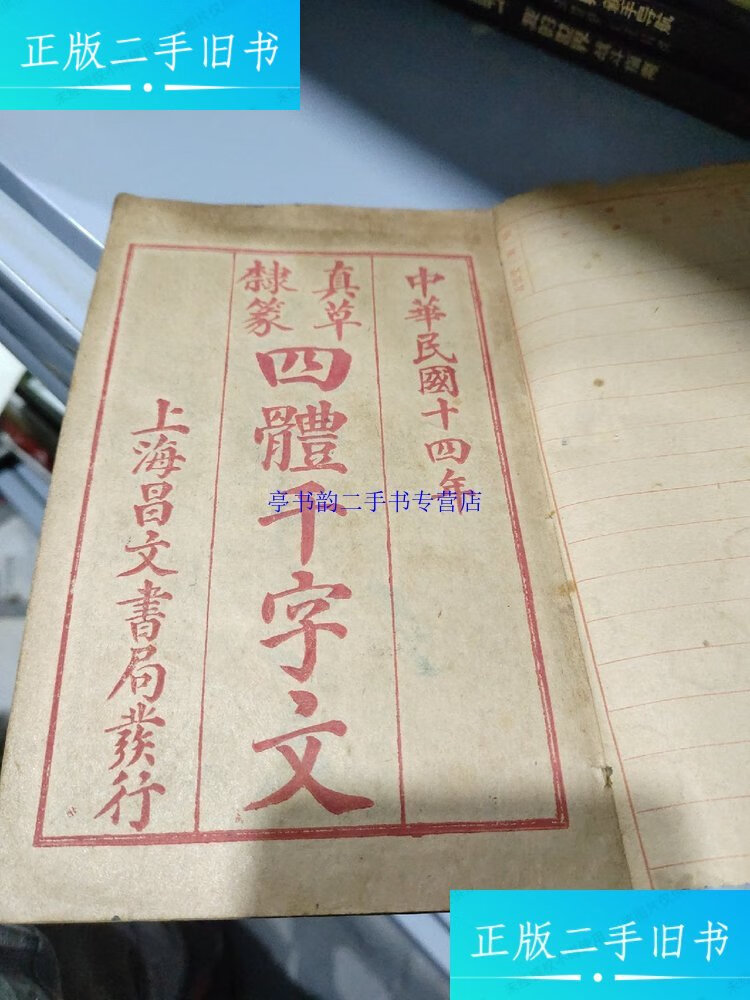 正版二手旧书
中華民國十四年
真草
隸篆
四體千字文
上海昌文書局發行
亭书韵二手书专营店
正版二手旧书